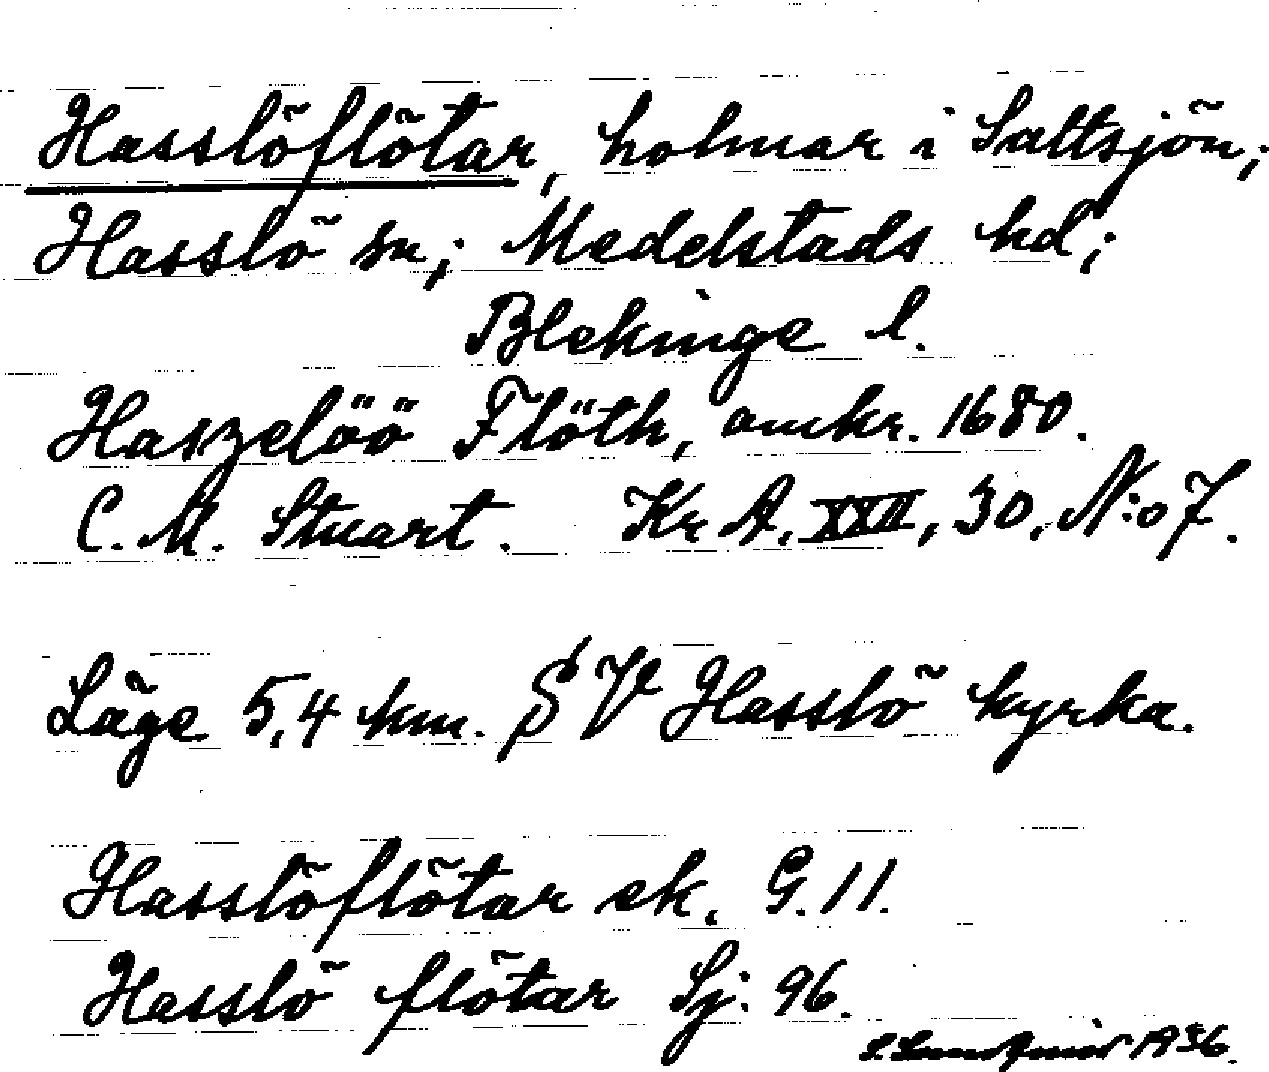 Hasslöflötar, holmar i Saltsjön;
Hasslö sn; Medelstads hd;
Blekinge l.
Haszelöö Flöth, omkr. 1680.
C. M. Stuart. Kr A. XXII, 30, N:o 7.
Läge 5,4 km. SV Hasslö kyrka.
Hasslöflötar ek. G. 11.
Hasslö flötar Sj: 96.
1936.